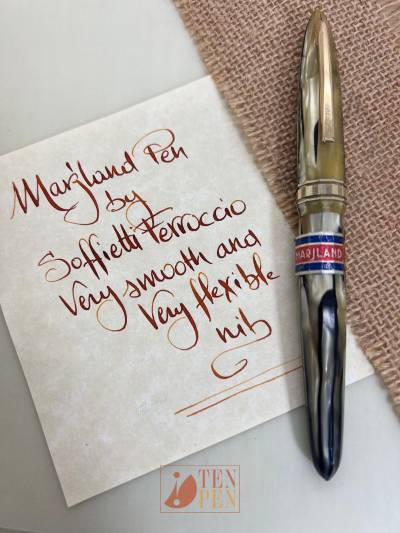 Marjland Pen
by
Soffietti Ferroccio
Very smooth and
Very flexible
nib
MARJLAND
TEN
PEN